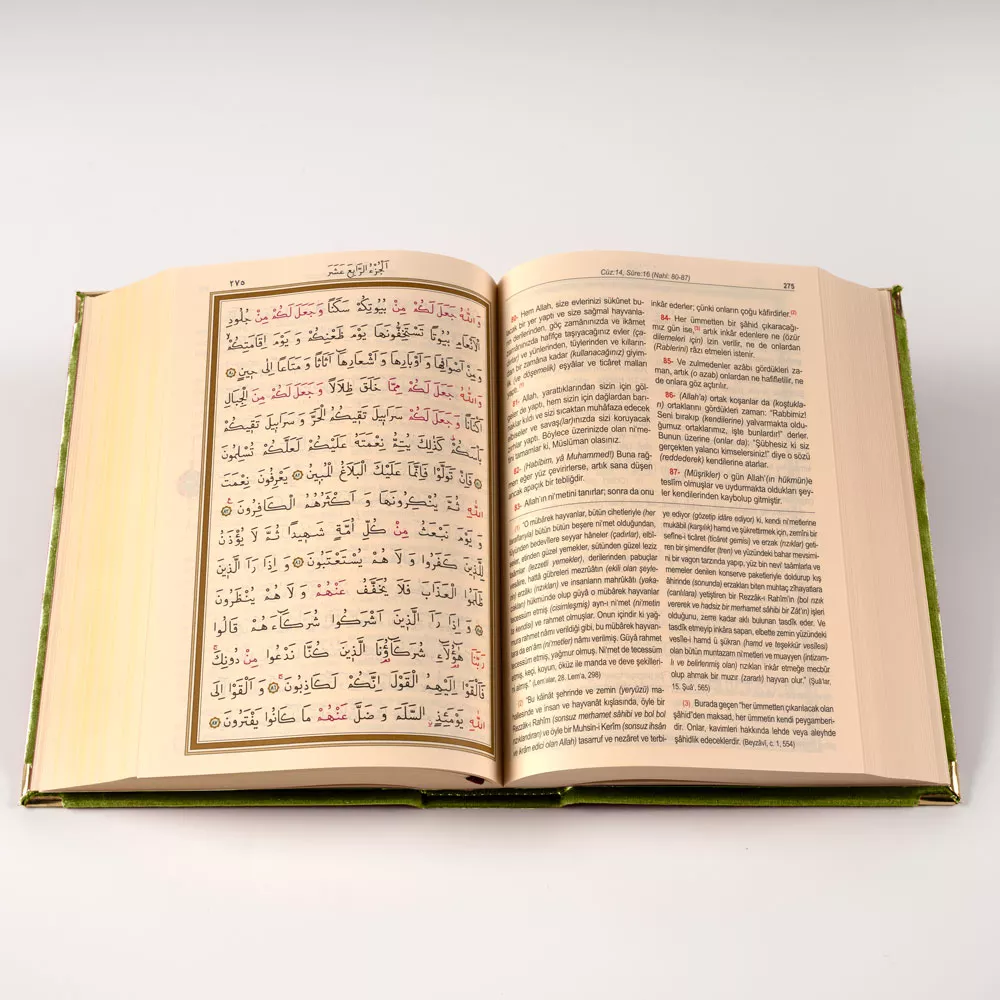 ٢٧٥
اَلْجُزْءُ الرَّابِعُ عَشَرَ
وَاللّٰهُ جَعَلَ لَكُمْ مِنْ بُيُوتِكُمْ سَكَنًا وَجَعَلَ لَكُمْ مِنْ جُلُودِ
الْاَنْعَامِ بُيُوتًا تَسْتَخِفُّونَهَا يَوْمَ ظَعْنِكُمْ وَ يَوْمَ اِقَامَتِكُمْ
وَمِنْ اَصْوَافِهَا وَ اَوْبَارِهَا وَ اَشْعَارِهَا اَثَاثًا وَ مَتَاعًا اِلٰى حِينٍ ﴿٨٠﴾
وَاللّٰهُ جَعَلَ لَكُمْ مِمَّا خَلَقَ ظِلَالًا وَجَعَلَ لَكُمْ مِنَ الْجِبَالِ
اَكْنَانًا وَجَعَلَ لَكُمْ سَرَابِيلَ تَقِيكُمُ الْحَرَّ وَ سَرَابِيلَ تَقِيكُمْ
بَأْسَكُمْ كَذٰلِكَ يُتِمُّ نِعْمَتَهُ عَلَيْكُمْ لَعَلَّكُمْ تُسْلِمُونَ
﴿٨١﴾ فَاِنْ تَوَلَّوْا فَاِنَّمَا عَلَيْكَ الْبَلَاغُ الْمُبِينُ ﴿٨٢﴾ يَعْرِفُونَ نِعْمَتَ
اللّٰهِ ثُمَّ يُنْكِرُونَهَا وَ اَكْثَرُهُمُ الْكَافِرُونَ ﴿٨٣﴾
وَ يَوْمَ نَبْعَثُ مِنْ كُلِّ اُمَّةٍ شَهِيدًا ثُمَّ لَا يُؤْذَنُ
لِلَّذِينَ كَفَرُوا وَ لَا هُمْ يُسْتَعْتَبُونَ ﴿٨٤﴾ وَ اِذَا رَاَ الَّذِينَ
ظَلَمُوا الْعَذَابَ فَلَا يُخَفَّفُ عَنْهُمْ وَ لَا هُمْ يُنْظَرُونَ
﴿٨٥﴾ وَ اِذَا رَاَ الَّذِينَ اَشْرَكُوا شُرَكَاءَهُمْ قَالُوا
رَبَّنَا هٰؤُلَاءِ شُرَكَاؤُنَا الَّذِينَ كُنَّا نَدْعُوا مِنْ دُونِكَ
فَاَلْقَوْا اِلَيْهِمُ الْقَوْلَ اِنَّكُمْ لَكَاذِبُونَ ﴿٨٦﴾ وَ اَلْقَوْا اِلَى
اللّٰهِ يَوْمَئِذٍ السَّلَمَ وَ ضَلَّ عَنْهُمْ مَا كَانُوا يَفْتَرُونَ ﴿٨٧﴾
Cüz:14, Sûre:16 (Nahl: 80-87)
275
80- Hem Allah, size evlerinizi sükûnet bu-
acak bir yer yaptı ve size sağmal hayvanla-
derilerinden, göç zamânınızda ve ikâmet
zamânınızda hafifçe taşıyacağınız evler (ça-
yaptı; ve yünlerinden, tüylerinden ve kılların-
bir zamana kadar (kullanacağınız) giyim-
(ve döşemelik) eşyâlar ve ticâret malları
yaptı. (1)
81- Allah, yarattıklarından sizin için göl-
ler de yaptı, hem sizin için dağlardan barı-
aklar kıldı ve sizi sıcaktan muhâfaza edecek
elbiseler ve savaş(lar)ınızda sizi koruyacak
yaptı. Böylece üzerinizde olan ni'me-
tamamlar ki, Müslüman olasınız.
82- (Habîbim, yâ Muhammed!) Buna rağ-
men eğer yüz çevirirlerse, artık sana düşen
ancak apaçık bir tebliğdir.
83- Allah'ın ni'metini tanırlar; sonra da onu
inkâr ederler; çünki onların çoğu kâfirdirler. (2)
84- Her ümmetten bir şâhid çıkaracağı-
mız gün ise, (3) artık inkâr edenlere ne (özür
dilemeleri için) izin verilir, ne de onlardan
(Rablerini) râzı etmeleri istenir.
85- Ve zulmedenler azâbı gördükleri za-
man, artık (o azab) onlardan ne hafifletilir, ne
de onlara göz açtırılır.
86- (Allah'a) ortak koşanlar da (koştukla-
rı) ortaklarını gördükleri zaman: "Rabbimiz!
Seni bırakıp (kendilerine) yalvarmakta oldu-
ğumuz ortaklarımız, işte bunlardır!" derler.
Bunun üzerine (onlar da): "Şübhesiz ki siz
gerçekten yalancı kimselersiniz!" diye o sözü
(reddederek) kendilerine atarlar.
87- (Müşrikler) o gün Allah'(ın hükmün)e
teslîm olmuşlar ve uydurmakta oldukları şey-
ler kendilerinden kaybolup gitmiştir.
(1) "O mübârek hayvanlar, bütün cihetleriyle (her
taraflarıyla) bütün bütün beşere ni'met olduğundan,
tüyünden bedevîlere seyyar hâneler (çadırlar), elbî-
seler, elinden güzel yemekler, sütünden güzel leziz
(lezzetli yemekler), derilerinden pabuçlar
vesâire, hattâ gübreleri mezrûâtın (ekili olan şeyle-
rin) erzâkı (rızıkları) ve insanların mahrûkātı (yaka-
hükmünde olup gûyâ o mübârek hayvanlar
tecessüm etmiş (cisimleşmiş) ayn-ı ni'met (ni'metin
kendisi) ve rahmet olmuşlar. Onun içindir ki yağ-
mura rahmet nâmı verildiği gibi, bu mübârek hayvan-
lara da en'âm (ni'metler) nâmı verilmiş. Gûyâ rahmet
tecessüm etmiş, yağmur olmuş. Ni'met de tecessüm
etmiş, keçi, koyun, öküz ile manda ve deve şekilleri-
ni almış." (Lem'alar, 28. Lem'a, 298)
(2) "Bu kâinât şehrinde ve zemin (yeryüzü) ma-
hallesinde ve insan ve hayvanât kışlasında, öyle bir
Rezzâk-ı Rahîm (sonsuz merhamet sâhibi ve bol bol
rızıklandıran) ve öyle bir Muhsin-i Kerîm (sonsuz ihsân
ve ikrâm edici olan Allah) tasarruf ve nezâret ve terbi-
ye ediyor (gözetip idâre ediyor) ki, kendi ni'metlerine
mukābil (karşılık) hamd ve şükrettirmek için, zemini bir
sefîne-i ticâret (ticâret gemisi) ve erzak (rızıklar) geti-
ren bir şimendifer (tren) ve yüzündeki bahar mevsimi-
ni bir vagon tarzında yapıp, yüz bin nevi taâmlarla ve
memeler denilen konserve paketleriyle doldurup kış
âhirinde (sonunda) erzakları biten muhtaç zîhayatlara
(canlılara) yetiştiren bir Rezzâk-ı Rahîm'in (bol rızık
vererek ve hadsiz bir merhamet sâhibi bir Zât'ın) işleri
olduğunu, zerre kadar aklı bulunan tasdîk eder. Ve
tasdîk etmeyip inkâra sapan, elbette zemin yüzündeki
vesîle-i hamd ü şükran (hamd ve teşekkür vesîlesi)
olan bütün muntazam ni'metleri ve muayyen (intizam-
lı ve belirlenmiş olan) rızıkları inkâr etmeğe mecbûr
olup ahmak bir muzır (zararlı) hayvan olur." (Şuâ'lar,
15. Şuâ', 565)
(3) Burada geçen "her ümmetten çıkarılacak olan
şâhid"den maksad, her ümmetin kendi peygamberi-
dir. Onlar, kavimleri hakkında lehde veya aleyhde
şâhidlik edeceklerdir. (Beyzâvî, c. 1, 554)